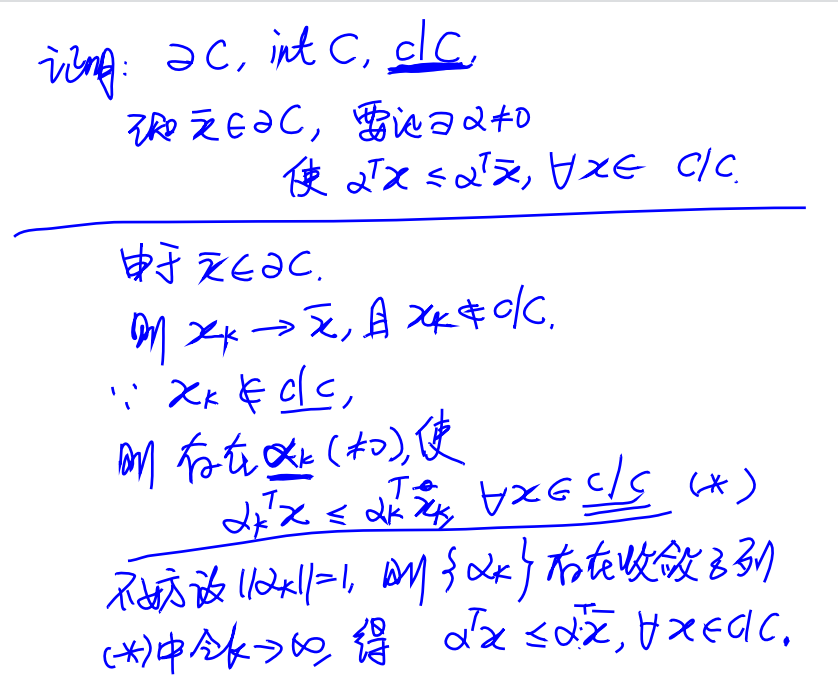 证明: ∂C, int C, cl C,
已知 x̄∈∂C, 要证∃α≠0
使 αᵀx ≤ αᵀx̄, ∀x∈ cl C.
由于 x̄∈∂C.
则 xₖ → x̄, 且 xₖ ∉ cl C.
∵ xₖ ∉ cl C,
则 存在 αₖ (≠0), 使
αₖᵀx ≤ αₖᵀxₖ, ∀x∈ cl C (*)
不妨设 ||αₖ||=1, 则 {αₖ} 存在收敛子列
(*)中令k→∞, 得 αᵀx ≤ αᵀx̄, ∀x∈cl C.